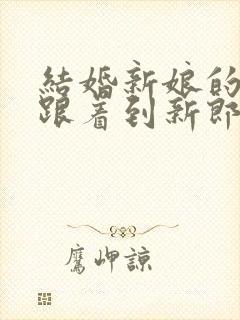 結婚新娘的
跟着到新郎
鷹岬諒